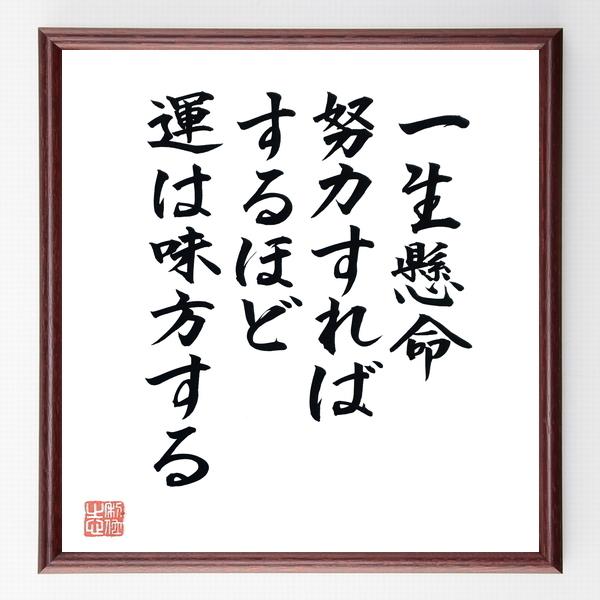 一生懸命
努力すれば
するほど
運は味方する